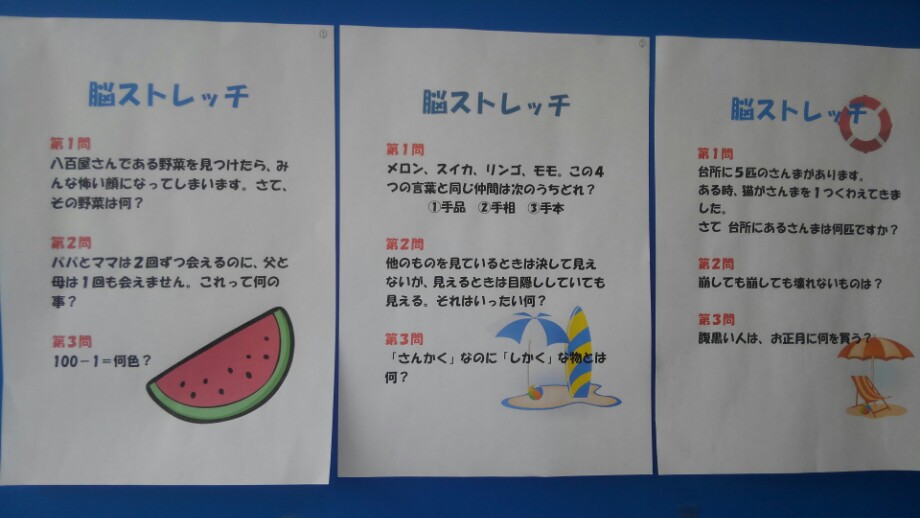 ①
脳ストレッチ
第1問
八百屋さんである野菜を見つけたら、み
んな怖い顔になってしまいます。さて、
その野菜は何？
第2問
パパとママは2回ずつ会えるのに、父と
母は1回も会えません。これって何の
事？
第3問
100－1＝何色？
脳ストレッチ
第1問
メロン、スイカ、リンゴ、モモ。この4
つの言葉と同じ仲間は次のうちどれ？
①手品 ②手相 ③手本
第2問
他のものを見ているときは決して見え
ないが、見えるときは目隠ししていても
見える。それはいったい何？
第3問
「さんかく」なのに「しかく」な物とは
何？
脳ストレッチ
第1問
台所に5匹のさんまがあります。
ある時、猫がさんまを1つくわえてきま
した。
さて 台所にあるさんまは何匹ですか？
第2問
崩しても崩しても壊れないものは？
第3問
腹黒い人は、お正月に何を買う？